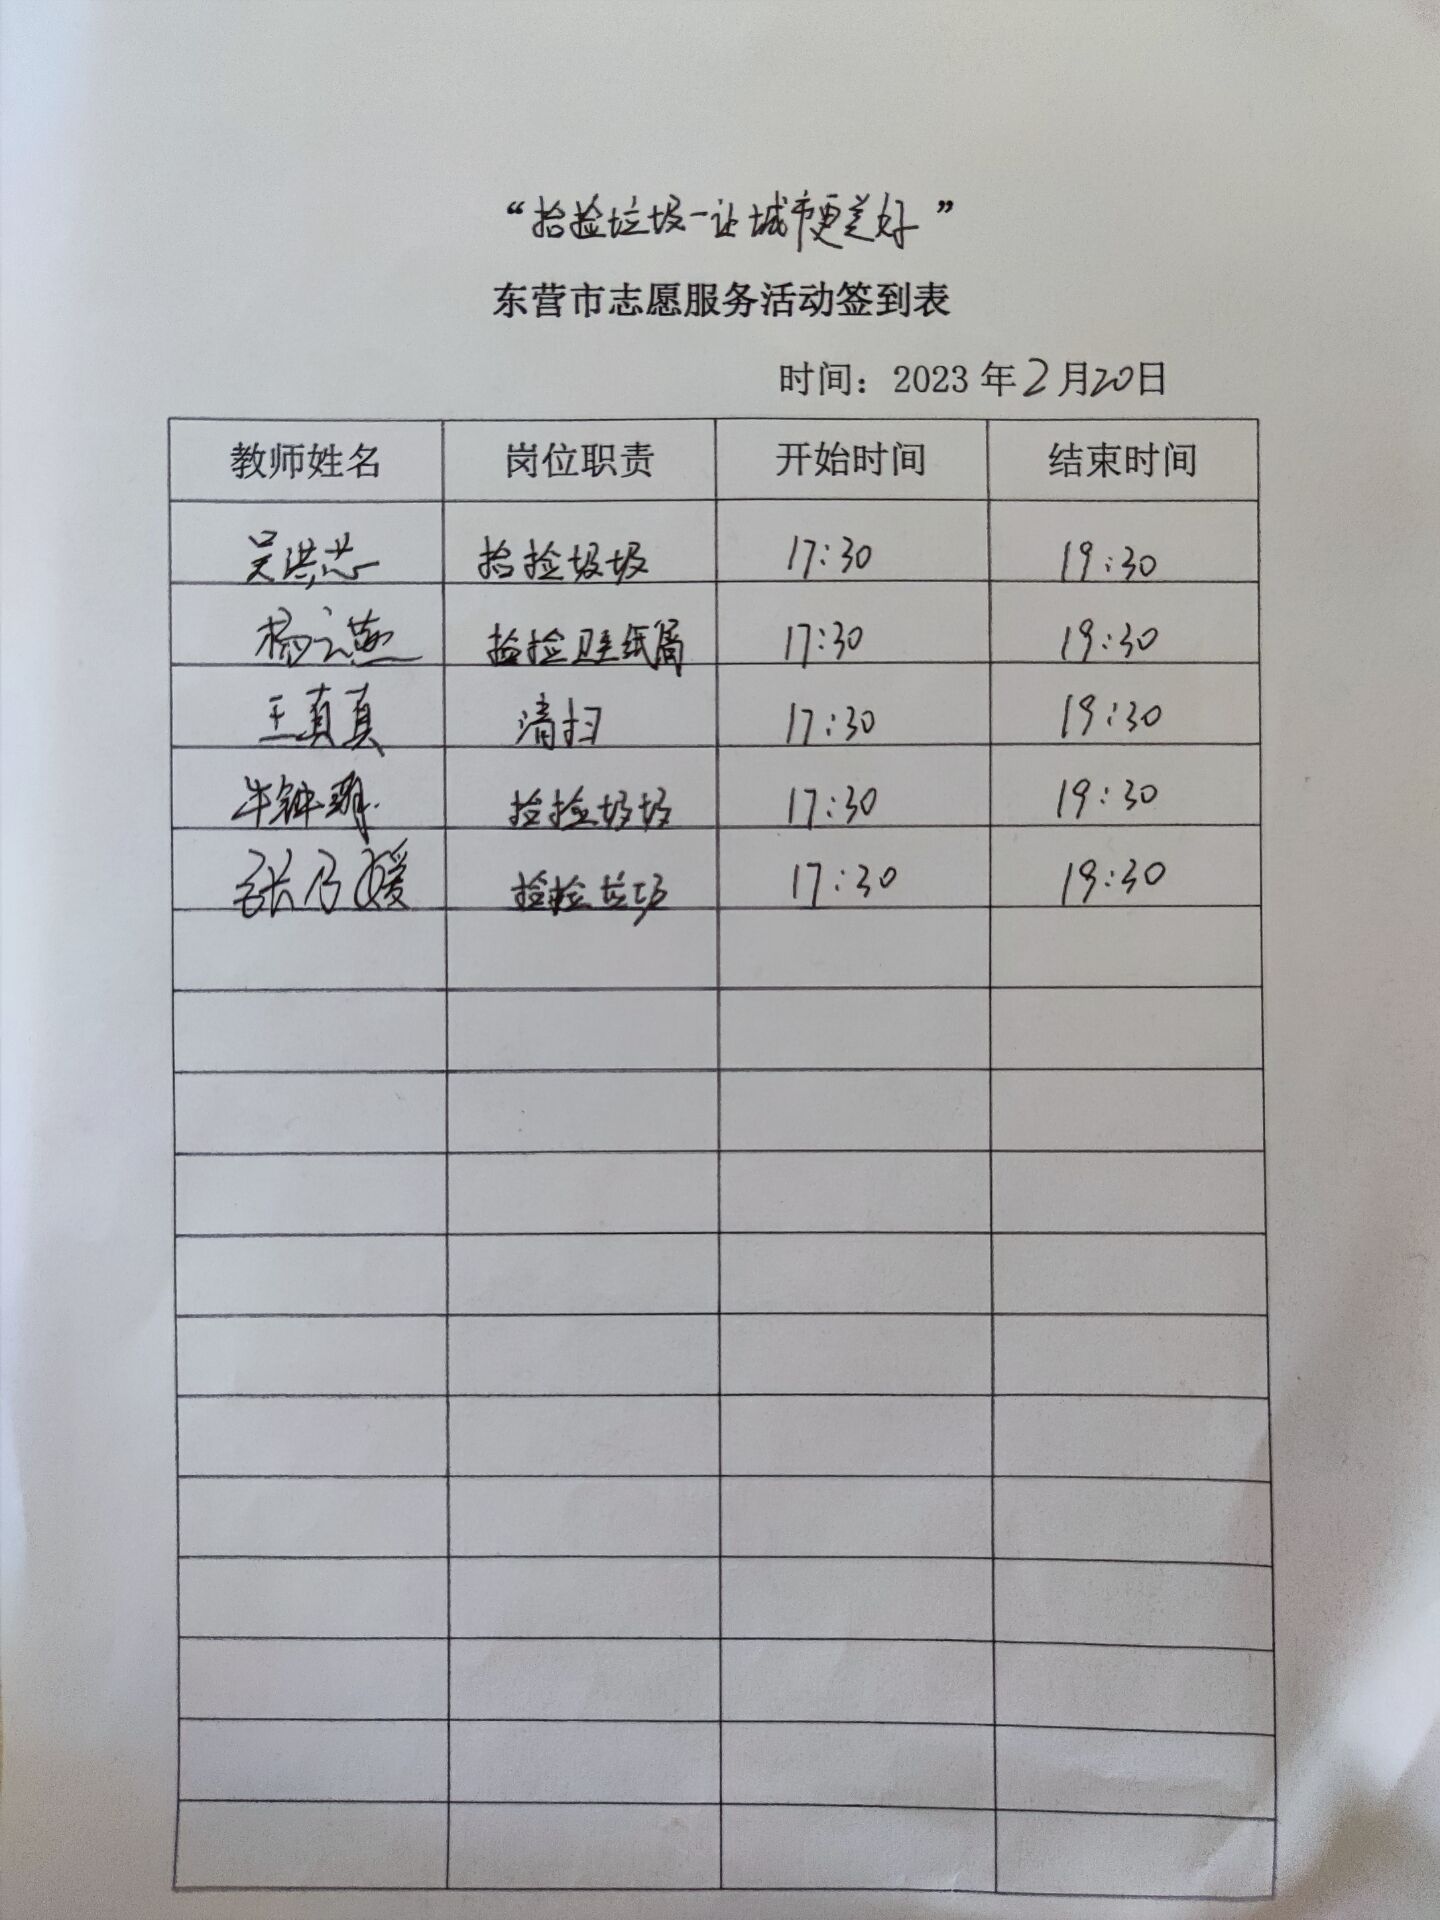 “拾捡垃圾一让城市更美好”
东营市志愿服务活动签到表
时间：2023年2月20日
教师姓名 岗位职责 开始时间 结束时间
吴洪芯 拾捡垃圾 17:30 19:30
杨云燕 捡卫生纸屑 17:30 19:30
王真真 清扫 17:30 19:30
牛钟 捡垃圾 17:30 19:30
张乃媛 捡垃圾 17:30 19:30